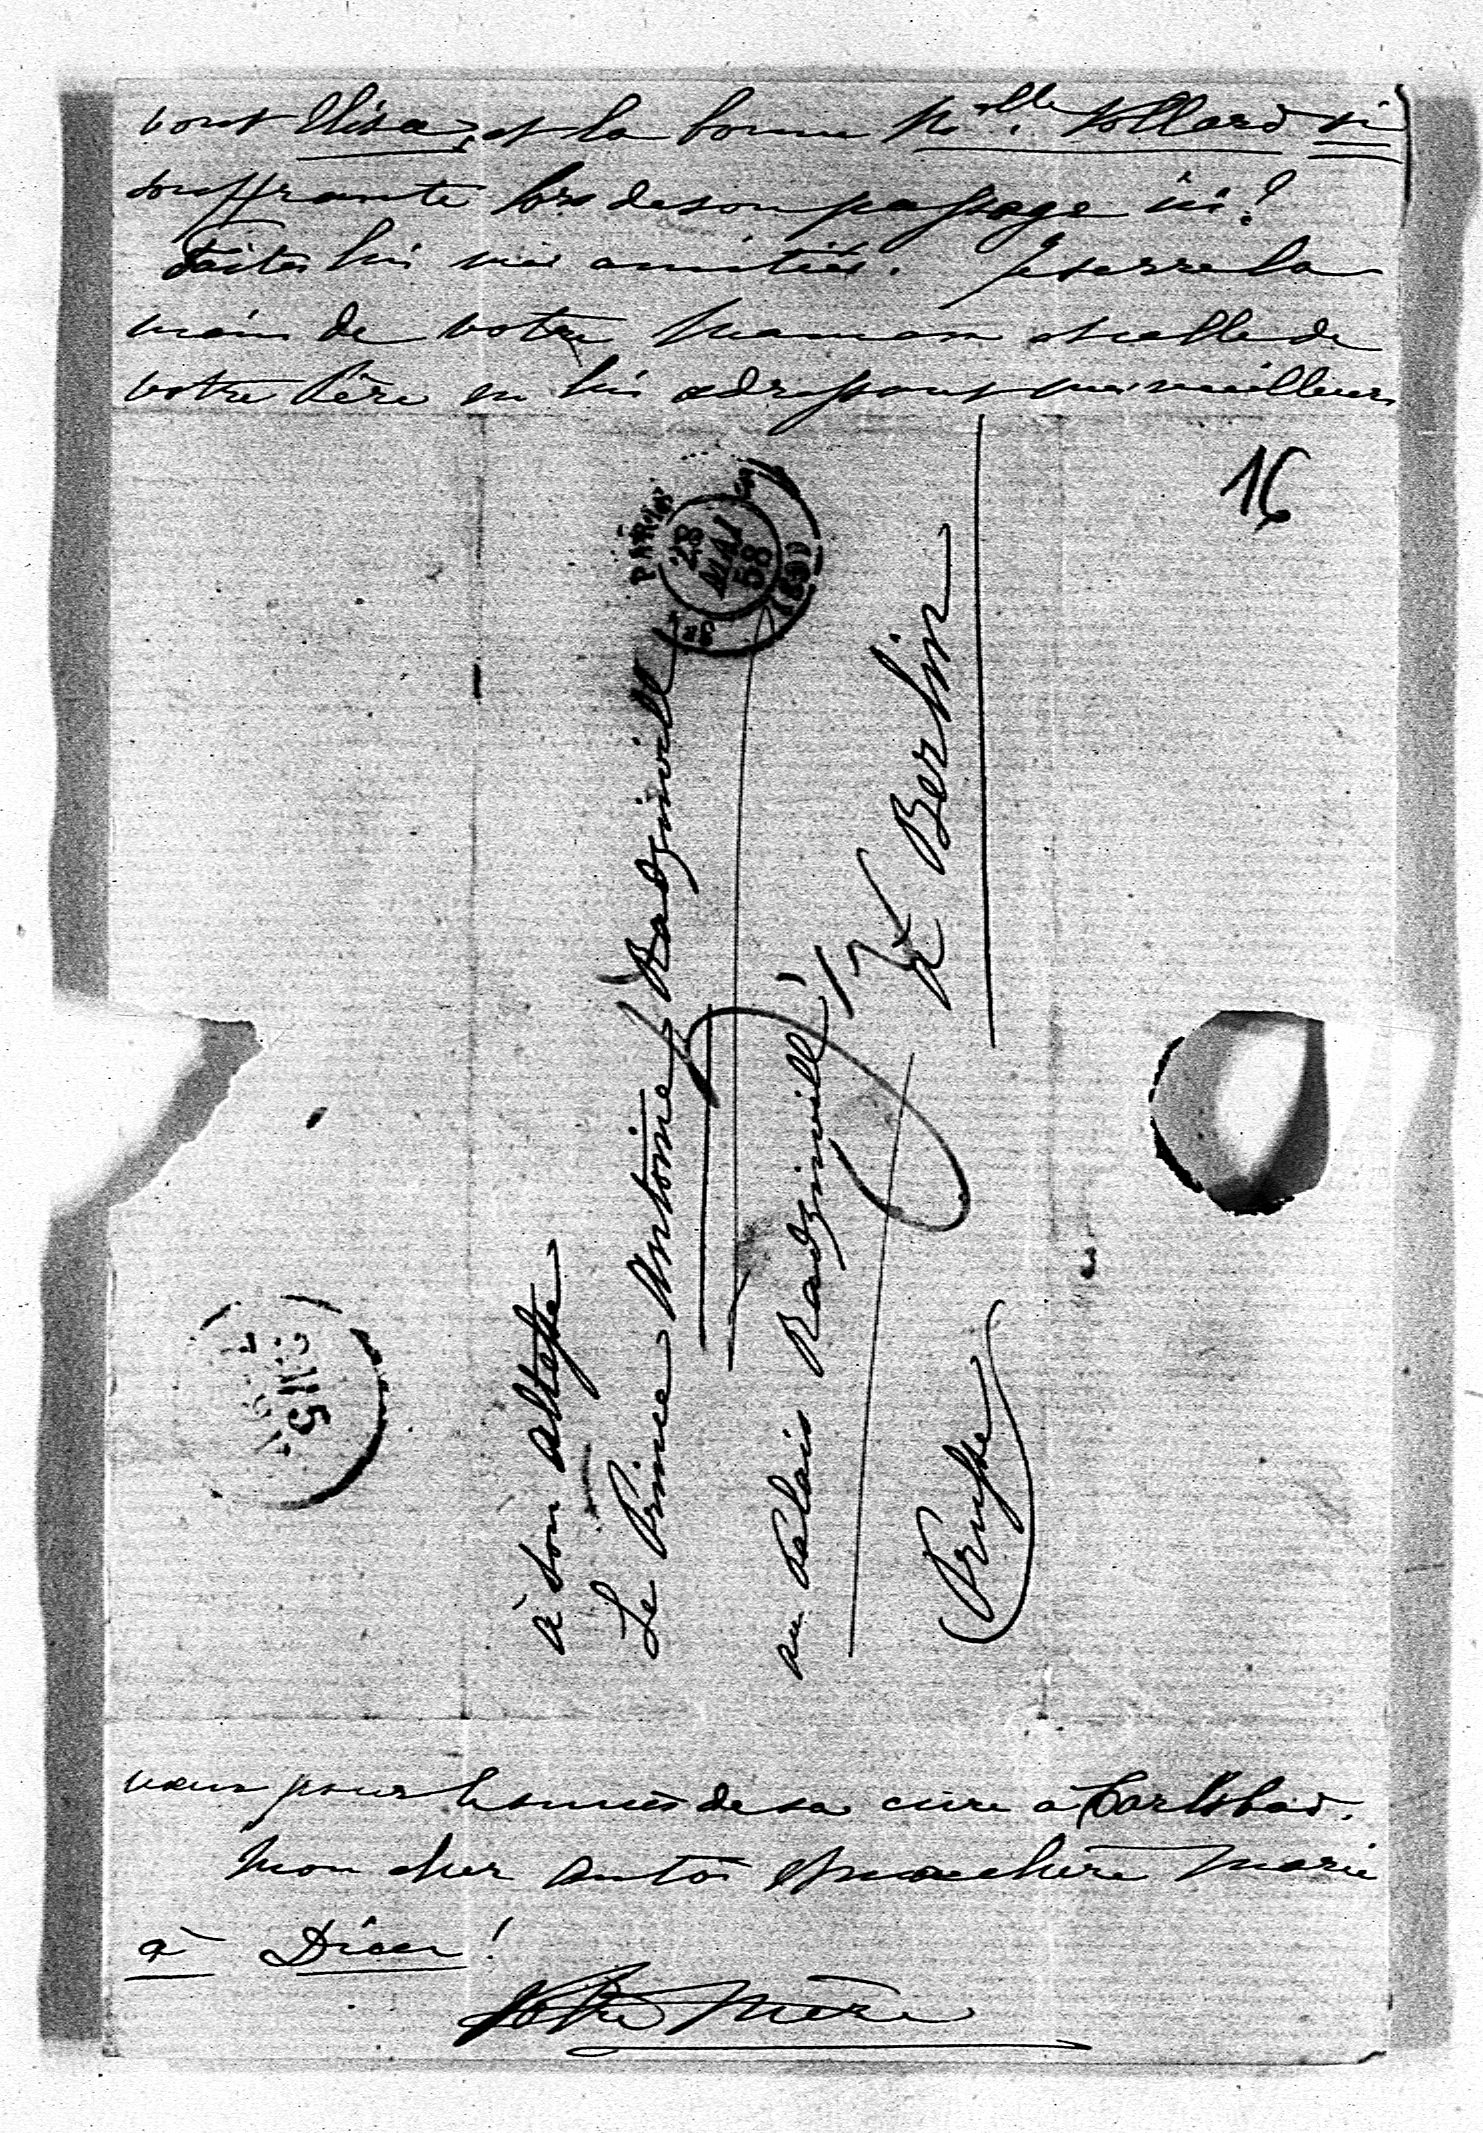 vont Elisa, et la bonne M.elle Vollard si
souffrante lors de son passage ici?
Faites lui mes amitiés. Je serre la
main de votre Maman et celle de
votre Père en lui adressant mes meilleurs
16
PARIS
28
MAI
58
(60)
à Son Altesse
Le Prince Antoine Radziwill
au Palais Radziwill
à Berlin
Prusse
vœux pour le succès de sa cure a Carlsbad.
Mon cher Anton et ma chère Marie
à Dieu!
Votre Mère